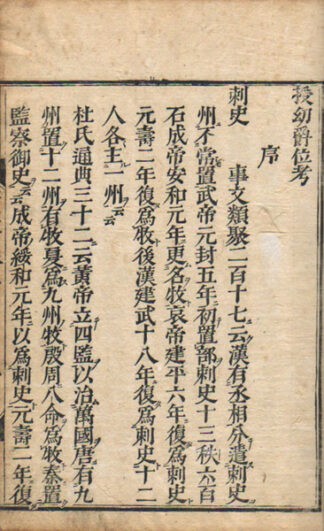 授幼爵位考
序
刺史　事文類聚二百十七云漢有丞相分遣刺史
州不常置武帝元封五年初置部刺史十三秩六百
石成帝安和元年更名牧哀帝建平六年復爲刺史
元壽二年復爲牧後漢建武十八年復爲刺史十二
人各主一州云云
杜氏通典三十二云黄帝立四監以治萬國唐有九
州置十二州有牧夏爲九州牧殷周八命爲牧秦置
監察御史云云成帝綏和元年以爲刺史元壽二年復